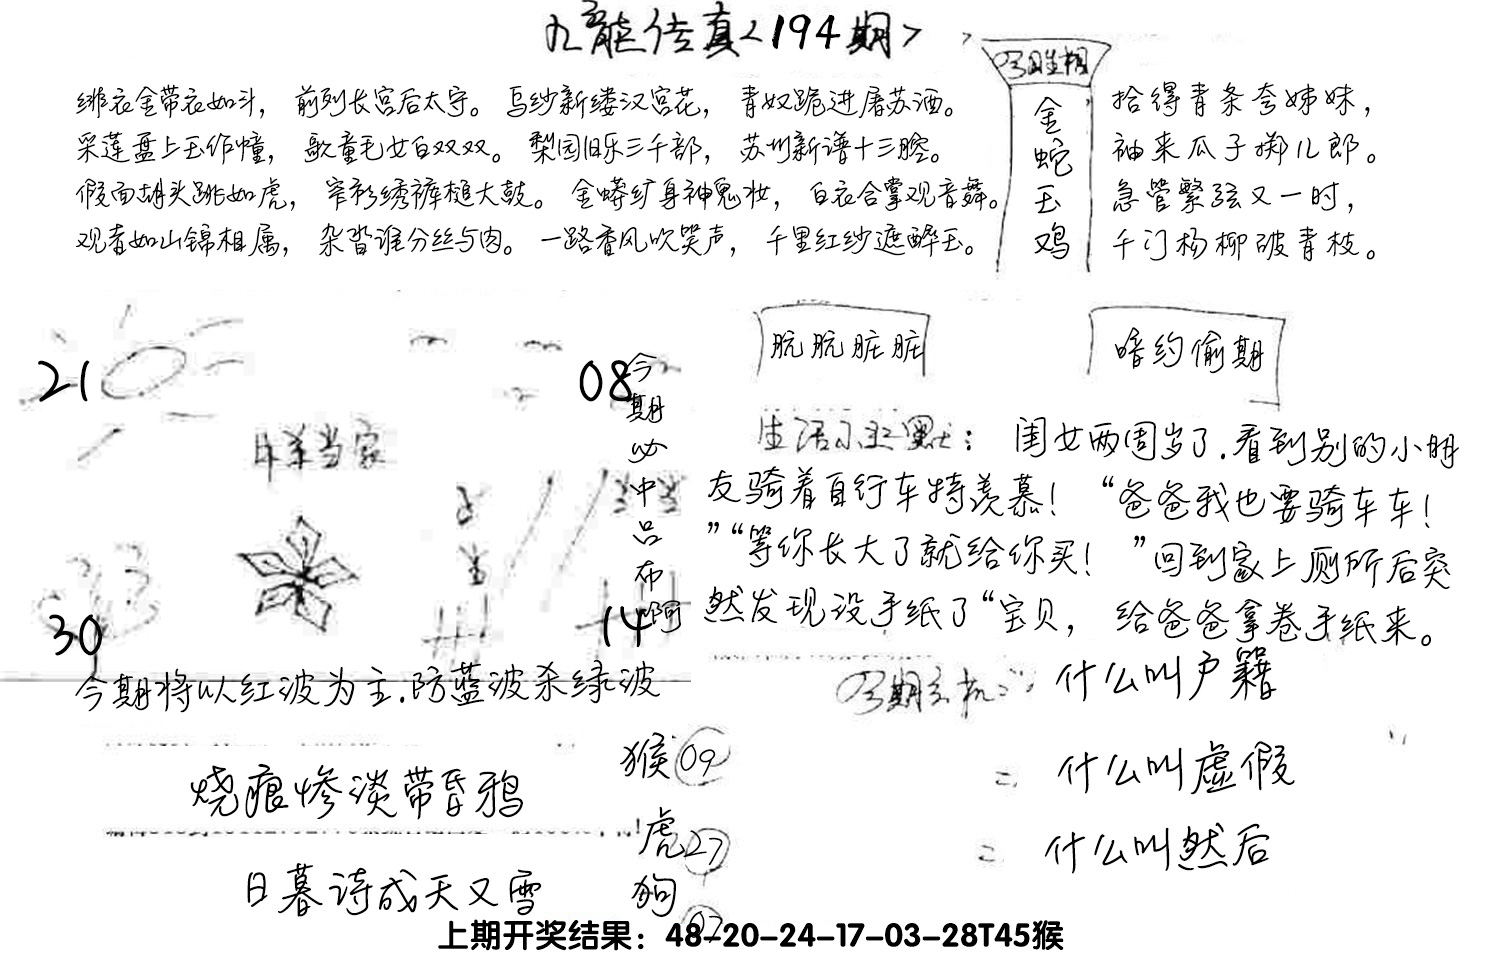 九龍传真<194期>
绯衣金带衣如斗，前列长宫后太守。乌纱新缕汉宫花，青奴跪进屠苏酒。
采莲盘上玉作幢，歌童毛女白双双。梨园旧乐三千部，苏州新谱十三腔。
假面胡头跳如虎，窄衫绣裤槌大鼓。金蟒纩身神鬼妆，白衣合掌观音舞。
观者如山锦相属，杂沓谁分丝与肉。一路香风吹笑声，千里红纱遮醉玉。
金蛇玉鸡
拾得青条夸姊妹，
袖来瓜子掷儿郎。
急管繁弦又一时，
千门杨柳破青枝。
21
08
30
14
今期必中吕布啊
当家
今期将以红波为主.防蓝波杀绿波
朊朊脏脏
暗约偷期
生活小幽默：闺女两周岁了.看到别的小朋
友骑着自行车特羡慕！“爸爸我也要骑车车！
”“等你长大了就给你买！”回到家上厕所后突
然发现没手纸了“宝贝，给爸爸拿卷手纸来。
什么叫户籍
二 什么叫虚假
二 什么叫然后
烧痕惨淡带昏鸦
日暮诗成天又雪
猴09
虎27
狗
上期开奖结果：48-20-24-17-03-28T45猴